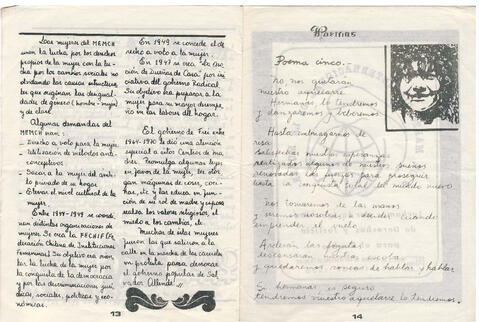 Las mujeres del MEMCH
unen la lucha por los derechos
propios de la mujer con la lu-
cha por los cambios sociales no
olvidando las causas estructura
les que originan las desigual-
dades de género (hombre - mujer)
y de clase.
Algunas demandas del
MEMCH eran:
- Derecho a voto para la mujer
- Utilización de métodos anti-
conceptivos
- Sacar a la mujer del ámbi
to privado de su hogar
- Elevar el nivel cultural de la
mujer.
Entre 1944-1949 se coordi
nan distintas organizaciones de
mujeres. Se crea la FECHIF (Fe
deración Chilena de Instituciones
Femeninas). Su objetivo era unir
las luchas de la mujer por
la conquista de la democracia
y por las discriminaciones jurí
dicas, sociales, políticas y eco-
nómicas.
13
En 1949 se concede el de
recho a voto a la mujer.
En 1947 se crea "La Aso
ciación de Dueñas de Casa" por ini
ciativa del gobierno Radical.
Su objetivo era preparar a la
mujer para un mejor desempe
ño en las labores del hogar.
El gobierno de Frei entre
1964-1970 le dió una atención
especial a los Centros de Ma-
dres. Promulga algunas leyes
en favor de la mujer, les otor
gan máquinas de coser, coci-
nas, etc y las educa en fun-
ción de su rol de madre y esposa
realza los valores religiosos, el
miedo a los cambios, etc.
Muchas de estas mujeres
fueron las que salieron a la
calle en la marcha de las cacerolas
en protesta para derrocar
el gobierno popular de Sal-
vador Allende.
Poemas
Poema cinco.-
No nos quitarán
nuestro aquelarre.
Hermanas, lo tendremos
y danzaremos y beberemos
Hasta embriagarnos de
risa
satisfechas nuestras esperanzas
realizados algunos de nuestros sueños
renovadas las fuerzas para proseguir
hasta la conquista total del mundo nuevo
nos tomaremos de las manos
y iremos nosotras a decidir cuándo
emprender el vuelo
Arderán las fogatas
descansarán nuestras escobas
y quedaremos roncas de hablar y hablar.
Sí hermanas es seguro
tendremos nuestro aquelarre lo tendremos.
14